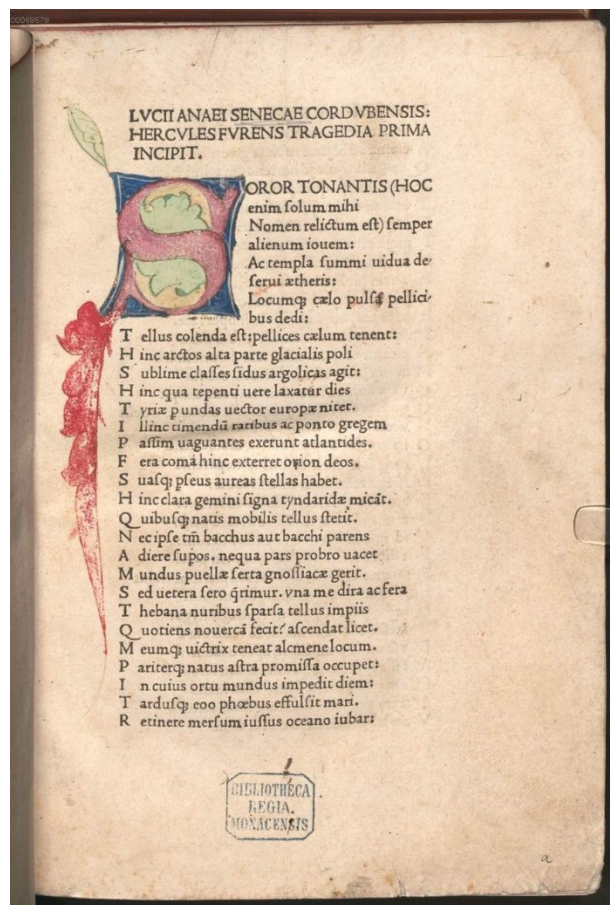 00069678
LVCII ANAEI SENECAE CORDVBENSIS:
HERCVLES FVRENS TRAGEDIA PRIMA
INCIPIT.
SOROR TONANTIS (HOC
enim ſolum mihi
Nomen relictum eſt) ſemper
alienum iouem:
Ac templa ſummi uidua de-
ſerui ætheris:
Locumq; cælo pulſa pellici-
bus dedi:
T ellus colenda eſt: pellices cælum tenent:
H inc arctos alta parte glacialis poli
S ublime claſſes ſidus argolicas agit:
H inc qua tepenti uere laxatur dies
T yriæ p undas uector europæ nitet.
I llinc timendū ratibus ac ponto gregem
P aſſim uaguantes exerunt atlantides.
F era comā hinc exterret orion deos.
S uaſq; pſeus aureas ſtellas habet.
H inc clara gemini ſigna tyndaridæ micāt.
Q uibuſq; natis mobilis tellus ſtetit.
N ec ipſe tm̄ bacchus aut bacchi parens
A diere ſupos. nequa pars probro uacet
M undus puellæ ſerta gnoſſiacæ gerit.
S ed uetera ſero q̄rimur. vna me dira ac fera
T hebana nuribus ſparſa tellus impiis
Q uotiens nouercā fecit? aſcendat licet.
M eumq; uictrix teneat alcmene locum.
P ariterq; natus aſtra promiſſa occupet:
I n cuius ortu mundus impedit diem:
T arduſq; eoo phœbus effulſit mari.
R etinere merſum iuſſus oceano iubar:
BIBLIOTHECA
REGIA.
MONACENSIS
a